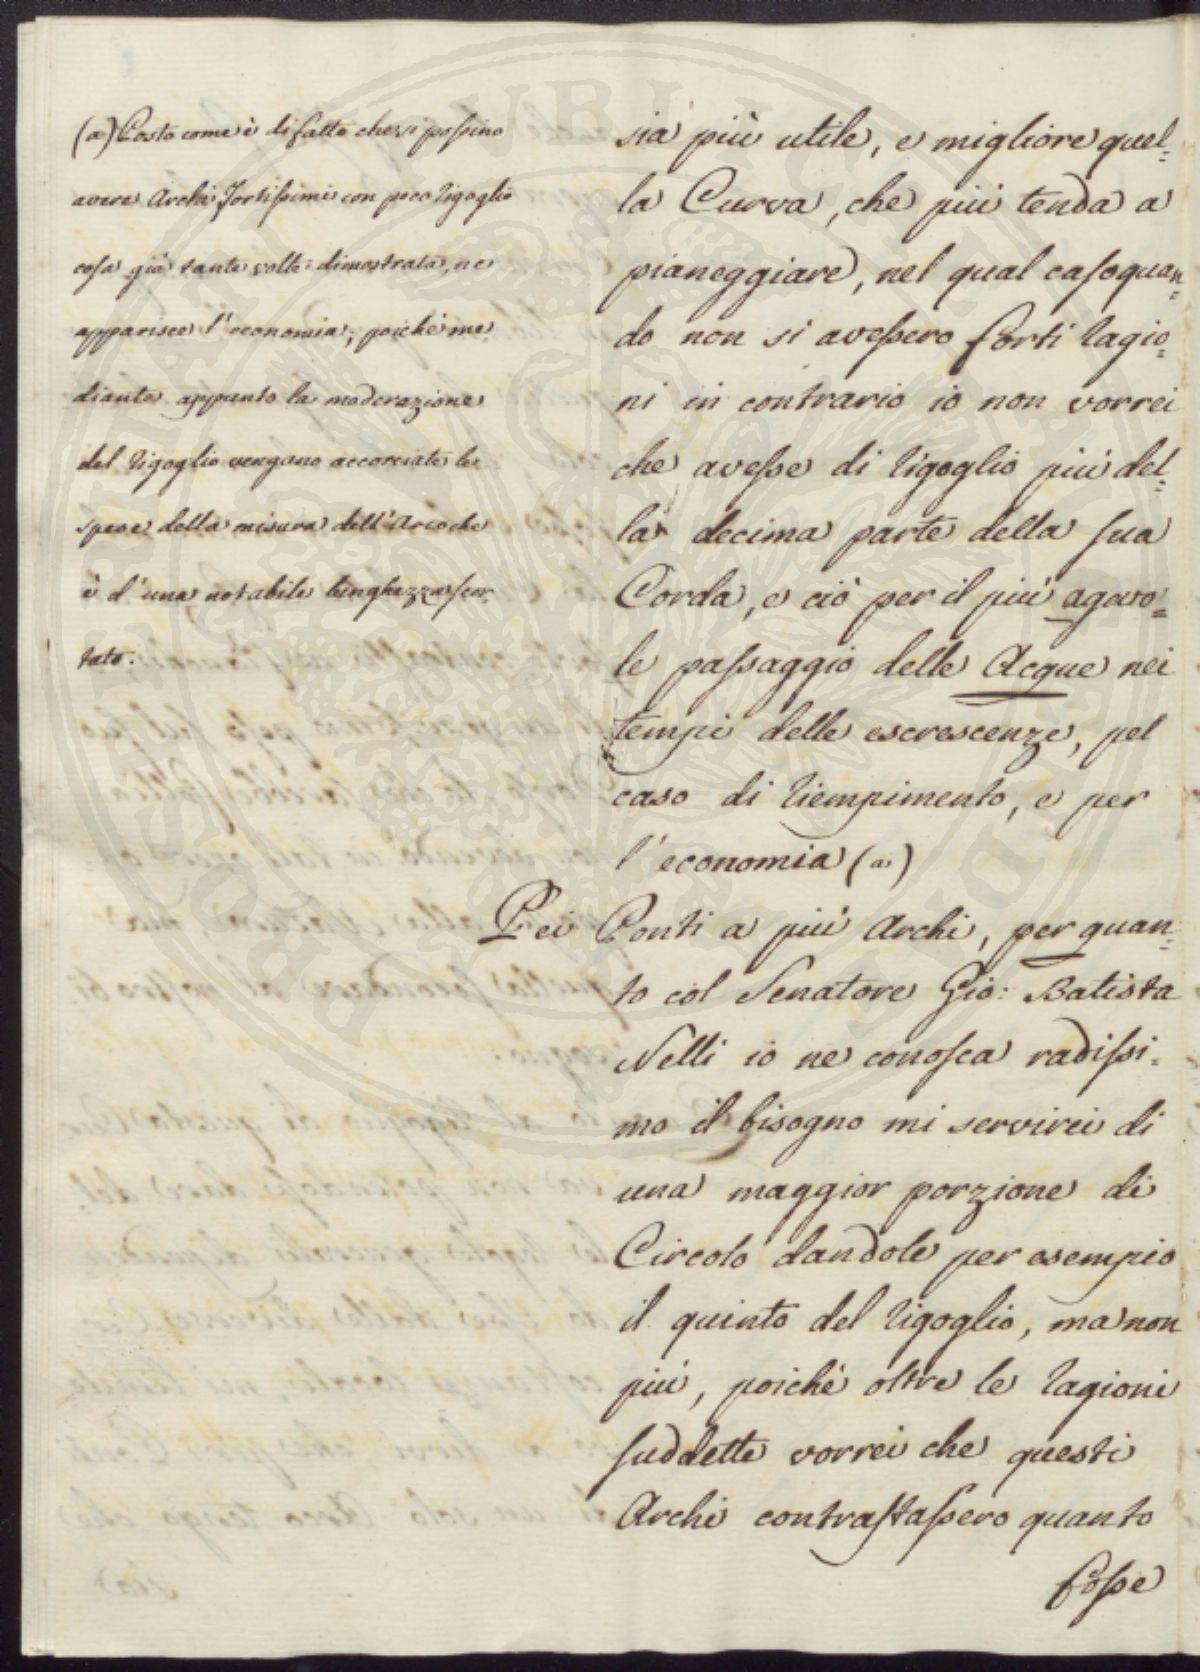 (a) Posto come è di fatto che si possino
avere Archi Fortissimi con poco rigoglio
cosa già tante volte dimostrata, ne
apparisce l'economia; poichè me
diante appunto la moderazione
del rigoglio vengono accorciate le
spese della misura dell'Arco che
è d'una notabile lunghezza scor
tato.
sia più utile, e migliore quel=
la Curva, che più tenda a
pianeggiare, nel qual caso quan=
do non si avessero forti ragio=
ni in contrario io non vorrei
che avesse di rigoglio più del=
la decima parte della sua
Corda, e ciò per il più agevo=
le passaggio delle Acque nei
tempi delle escrescenze, pel
caso di riempimento, e per
l'economia (a)
Pei Ponti a più Archi, per quan=
to col Senatore Gio: Batista
Nelli io ne conosca radissi=
mo il bisogno mi servirei di
una maggior porzione di
Circolo dandole per esempio
il quinto del rigoglio, ma non
più, poichè oltre le ragioni
suddette vorrei che questi
Archi contrastassero quanto
fosse